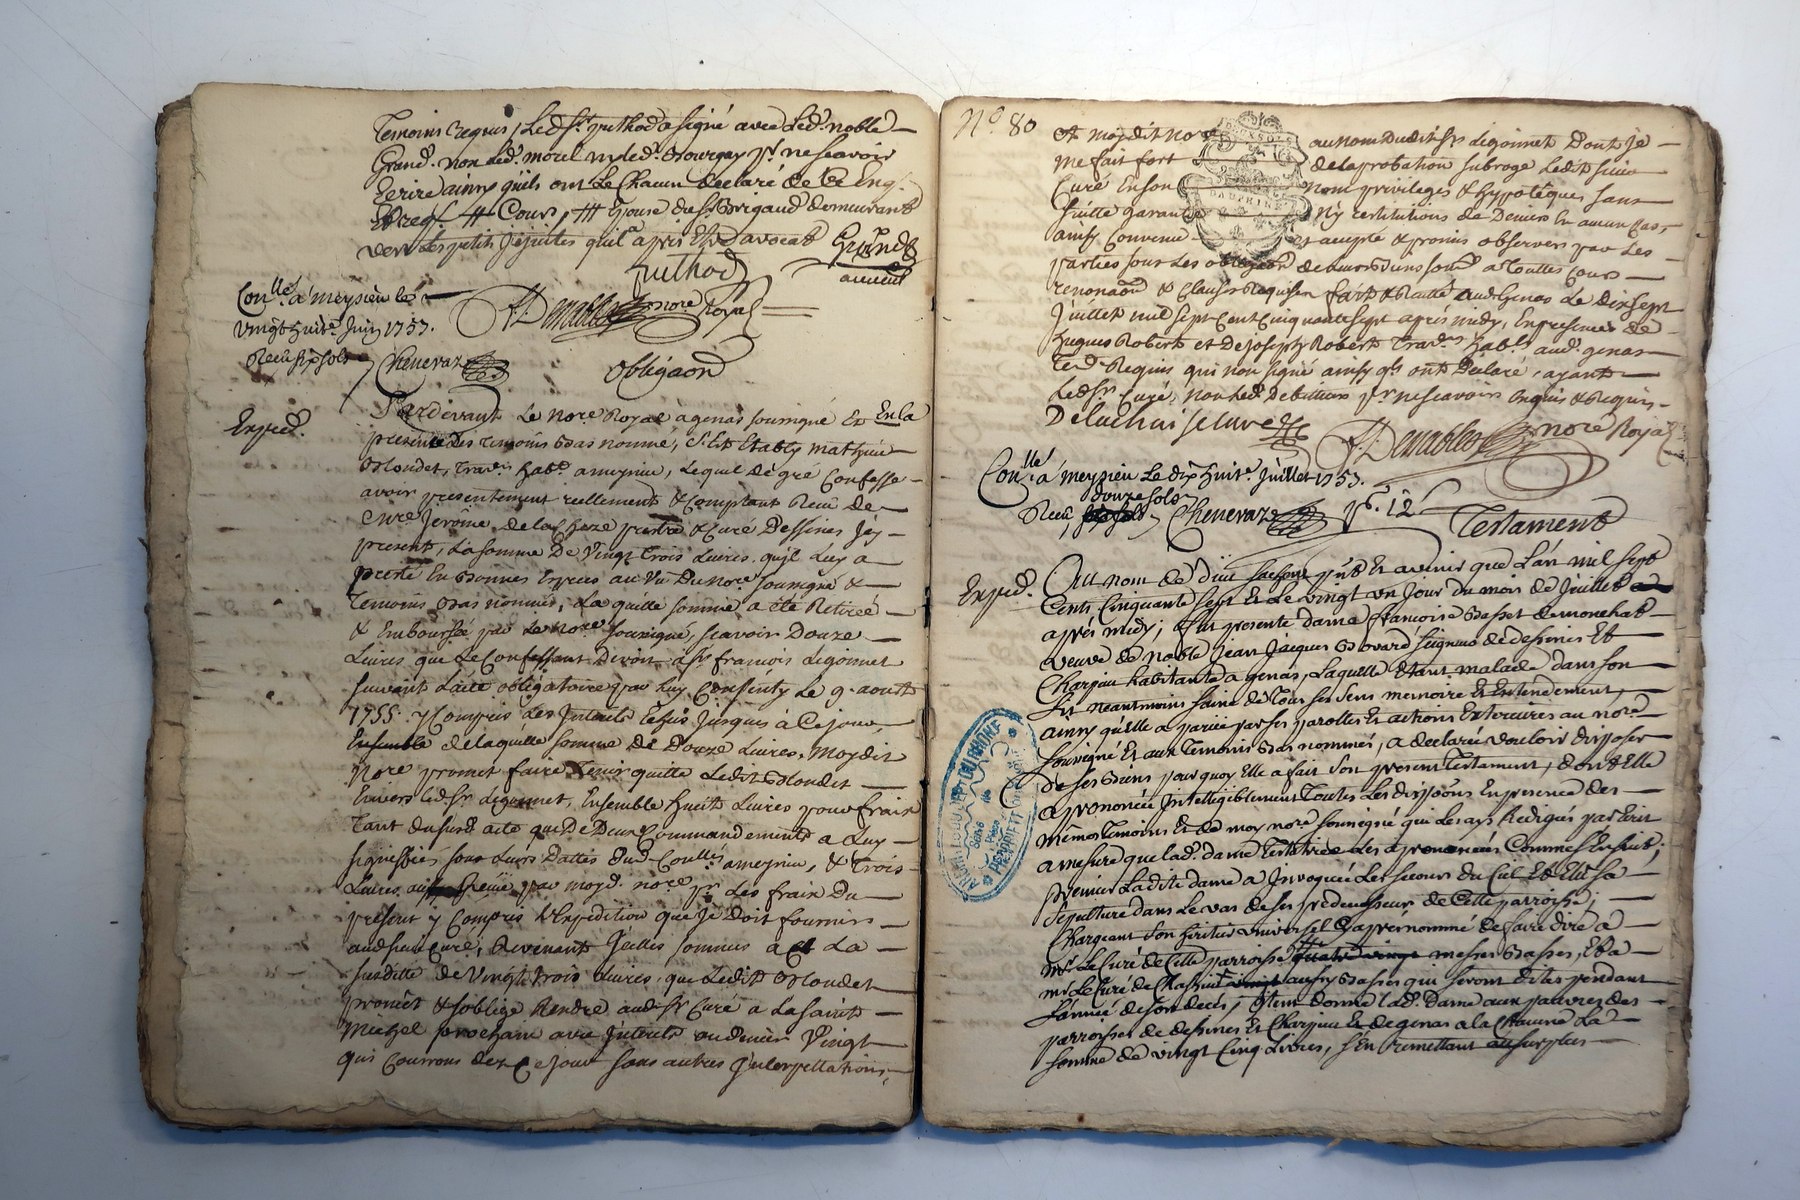 Temoins requis, Led. Sr. puthod a signé avec Led. noble
Grand. non Led. morel ny led. pr. ne scavoir
Ecrire ainsy qu'ils ont Le Chacun declaré de Ce Enq.
Et req. # Cour, ## Epouse du Sr. Brigaud demeurant
vers Les petits Jesuittes
Grand
puthod
Conllé. a meysieu le
vingt huite. Juin 1757.
Receu six sols
Chenevaz
Demables nore Royal
obligaon
Exped.
Pardevant Le nore. Royal a genas soussigné Et En la
presence des temoins bas nommé, S'est Etably mathieu
Blondet, Travr. habt. a meyzieu, Lequel de gré Confesse
avoir presentement reellement & Comptant Receu de
mre. Jerôme de la Chaze prêtre & Curé Dessines Jcy
present, La somme De Vingt trois Livres qu'il Luy a
presté En bonnes Especes au Vu du nore. soussigné &
temoins bas nommés, La quelle somme a eté Retireé
& Emboursée par Le nore. soussigné, scavoir Douze
Livres que Le Confessant Devoit à Sr. francois Ligonnet
suivant L'acte obligatoire par Luy Consenty Le 9. aoust
1755. y Compris Les Jnterets Echus jusques à Ce jour,
Ensemble de laquelle somme De Douze Livres, moydit
Nore. promet faire tenir quitte Ledit Blondet
Envers led. Sr. Ligonnet, Ensemble huit Livres pour frais
Tant du susd. acte que De Deux Commandements a Luy
signiffiés sous Leurs Dattes dud. Conllés a meyzieu, & Trois
Livres aussy par moyd. nore. pr. Les frais Du
present y Compris L'Expedition que Je Doit fournir
aud. sieur Curé, Revenant Jcelles sommes a La
susditte de Vingt trois Livres, que Ledit Blondet
promet & s'oblige Rendre aud. Sr. Curé a La saint
michel prochain avec Jnterets au denier Vingt
qui Courront dez Ce jour sans autres Jnterpellations,
No. 80
Et moydit nore. au nom Dudit Sr. Ligonnet Dont je
me fait fort de laprobation subroge Ledit sieur
Curé En son nom privileges & hypotêques sans
suitte garantie Ny restitutions de Deniers En aucun Cas,
ainsy Convenu et accepté & promis observer par Les
parties sous Les obligaon. de leurs biens soum. a Touttes Cours
renonaon. & Clauses Requises fait & Recitté aud. Genas Le Dix sept
Juillet mil sept Cent Cinquante sept aprés midy, En presence de
hugues Robert et De Joseph Robert Travrs. habts. aud. genas
Tem. Requis qui n'ont signé ainsy qs. ont Declaré, ayant
Led. Sr. Curé, Non Led. Debitteur pr. ne scavoir Enquis & Requis
Delachaise Curé
Demables nore Royal
Conllé. à meysieu Le dix huite. Juillet 1757.
douze sols
Receu Chenevaz
Testament
Exped.
Au nom de Dieu sachent pnts. Et avenir que L'an mil sept
Cents Cinquante sept Et Le vingt un Jour du mois de Juillet
aprés midy; fut presente dame francoise Basset de monchat
veuve de noble Jean Jacques Bovard seigneur de dessines Et
Charpieu habitante a genas, Laquelle Etant malade dans son
Lit neantmoins saine de tous ses sens memoire Et Entendement,
ainsy qu'elle a parüe par ses parolles Et actions Exterieures au nore.
soussigné Et aux temoins bas nommés, a declarée vouloir disposer
De ses biens pourquoy Elle a fait son present testament, dont Elle
a prononcée Jntelligiblement Toutes Les disposons. En presence des
mêmes temoins Et de moy nore. soussigné qui Les ays Redigées par Ecrit
a mesure que lad. dame testatrice Les a prononcées Comme s'Ensuit;
premier Ladite dame a Jnvoquée Le secours du Ciel Et Elit sa
sepulture dans Le vas de ses predecesseurs de Cette parroisse;
Chargeant son heritier universel Cy aprés nommé de faire dire a
mr. Le Curé de Cette parroisse messes Basses, Et a
mr. Le Curé de Chassieu aussy Basses qui seront dites pendant
L'année de son decés; Jtem donne lad. Dame aux pauvres des
parroisses de dessines Et Charpieu Et de genas a la Chacune La
somme de vingt Cinq Livres, s'En remettant au surplus